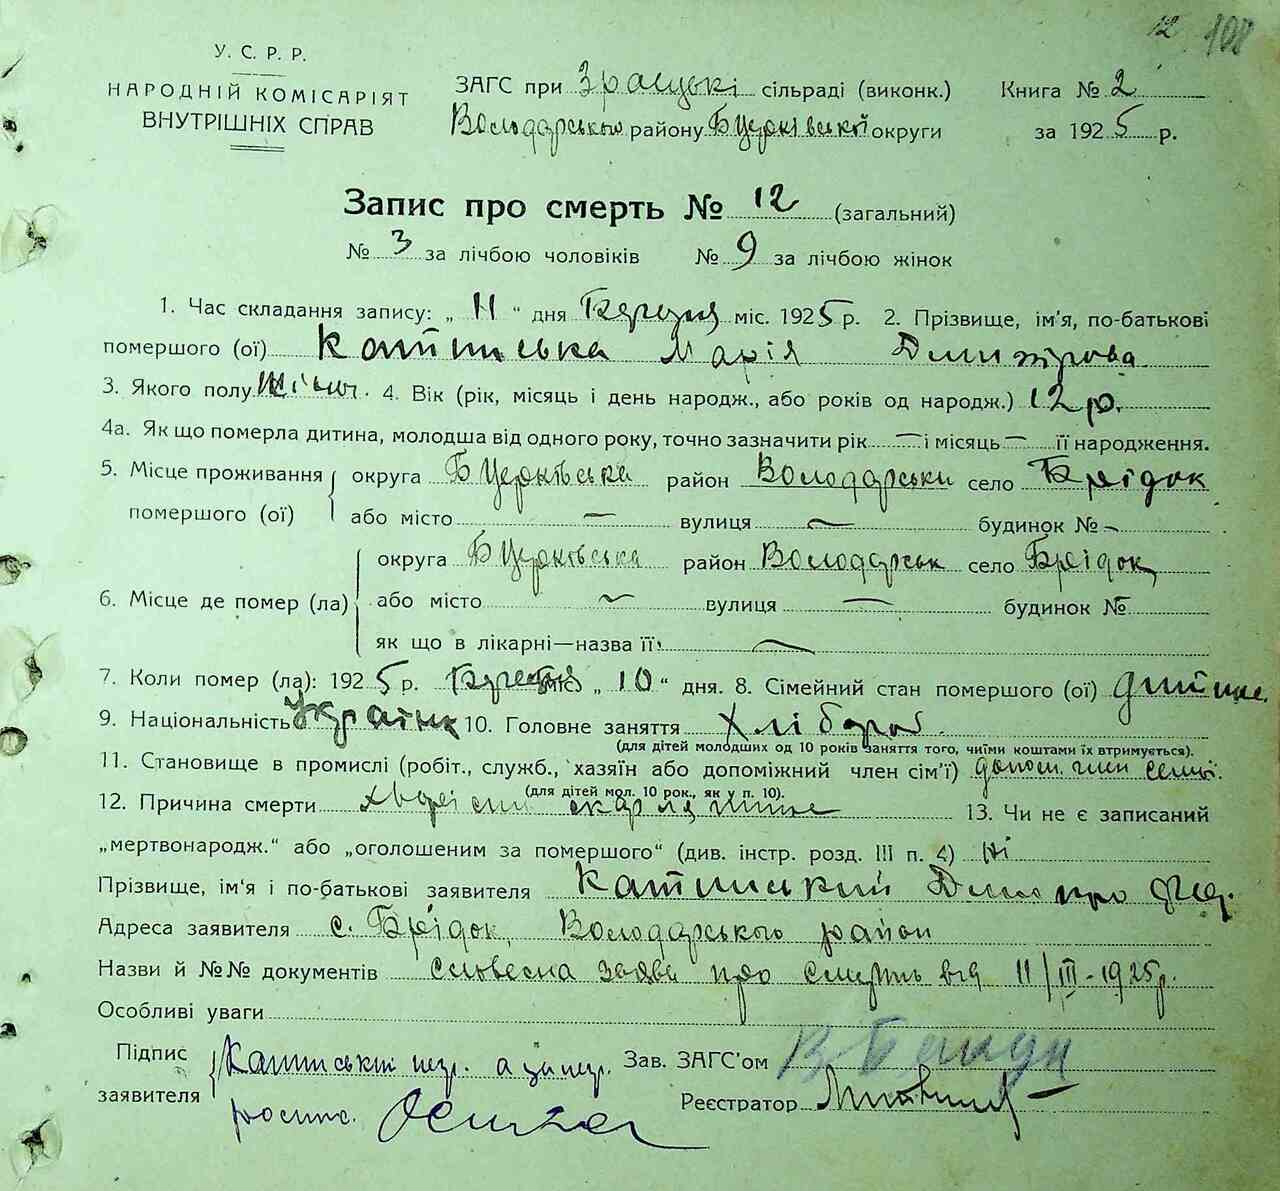 12 108
У. С. Р. Р.
НАРОДНІЙ КОМІСАРІЯТ
ВНУТРІШНІХ СПРАВ
ЗАГС при сільраді (виконк.)
Володарського району Бцерківської округи
Книга № 2
за 1925 р.
Запис про смерть № 12 (загальний)
№ 3 за лічбою чоловіків № 9 за лічбою жінок
1. Час складання запису: „ 11 “ дня Березня міс. 1925 р. 2. Прізвище, ім'я, по-батькові
помершого (ої) Марія Дмитрова
3. Якого полу жіноч. 4. Вік (рік, місяць і день народж., або років од народж.) 12 р.
4а. Як що померла дитина, молодша від одного року, точно зазначити рік — і місяць — її народження.
5. Місце проживання помершого (ої) округа БЦерківська район Володарськи село Брідок
або місто — вулиця — будинок № –
6. Місце де помер (ла) округа БЦерківська район Володарськ село Брідок
або місто ~ вулиця — будинок №
як що в лікарні—назва її: —
7. Коли помер (ла): 1925 р. Березня міс. „ 10 “ дня. 8. Сімейний стан помершого (ої) дитина.
9. Національність Українк 10. Головне заняття хлібороб
(для дітей молодших од 10 років заняття того, чиїми коштами їх втримується).
11. Становище в промислі (робіт., служб., хазяїн або допоміжний член сім'ї) допом. член семї.
(для дітей мол. 10 рок., як у п. 10).
12. Причина смерти скарлятина 13. Чи не є записаний
„мертвонародж.“ або „оголошеним за помершого“ (див. інстр. розд. III п. 4) Ні
Прізвище, ім'я і по-батькові заявителя Дмитро
Адреса заявителя с. Брідок, Володарського район
Назви й №№ документів словесна заява про смерть від 11/III-1925р.
Особливі уваги
Підпис заявителя
Зав. ЗАГС'ом
Реєстратор